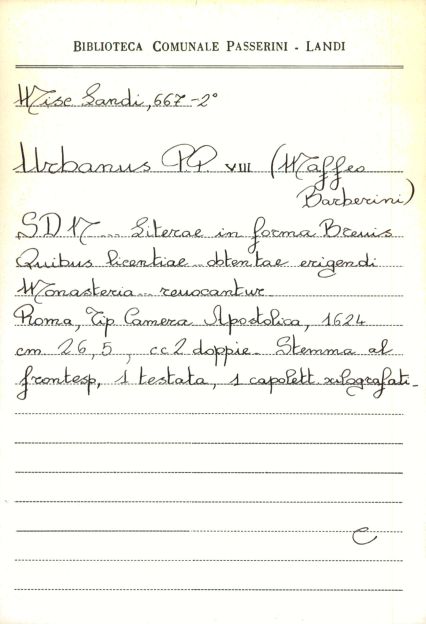 BIBLIOTECA COMUNALE PASSERINI - LANDI
Misc Landi, 667-2°
Urbanus P.P. VIII (Maffeo
Barberini)
SD N... Literae in forma Brevis
Quibus licentiae.. obtentae erigendi
Monasteria... revocantur
Roma, Tip Camera Apostolica, 1624
cm 26,5, cc 2 doppie. Stemma al
frontesp, 1 testata, 1 capolett xilografati.
C